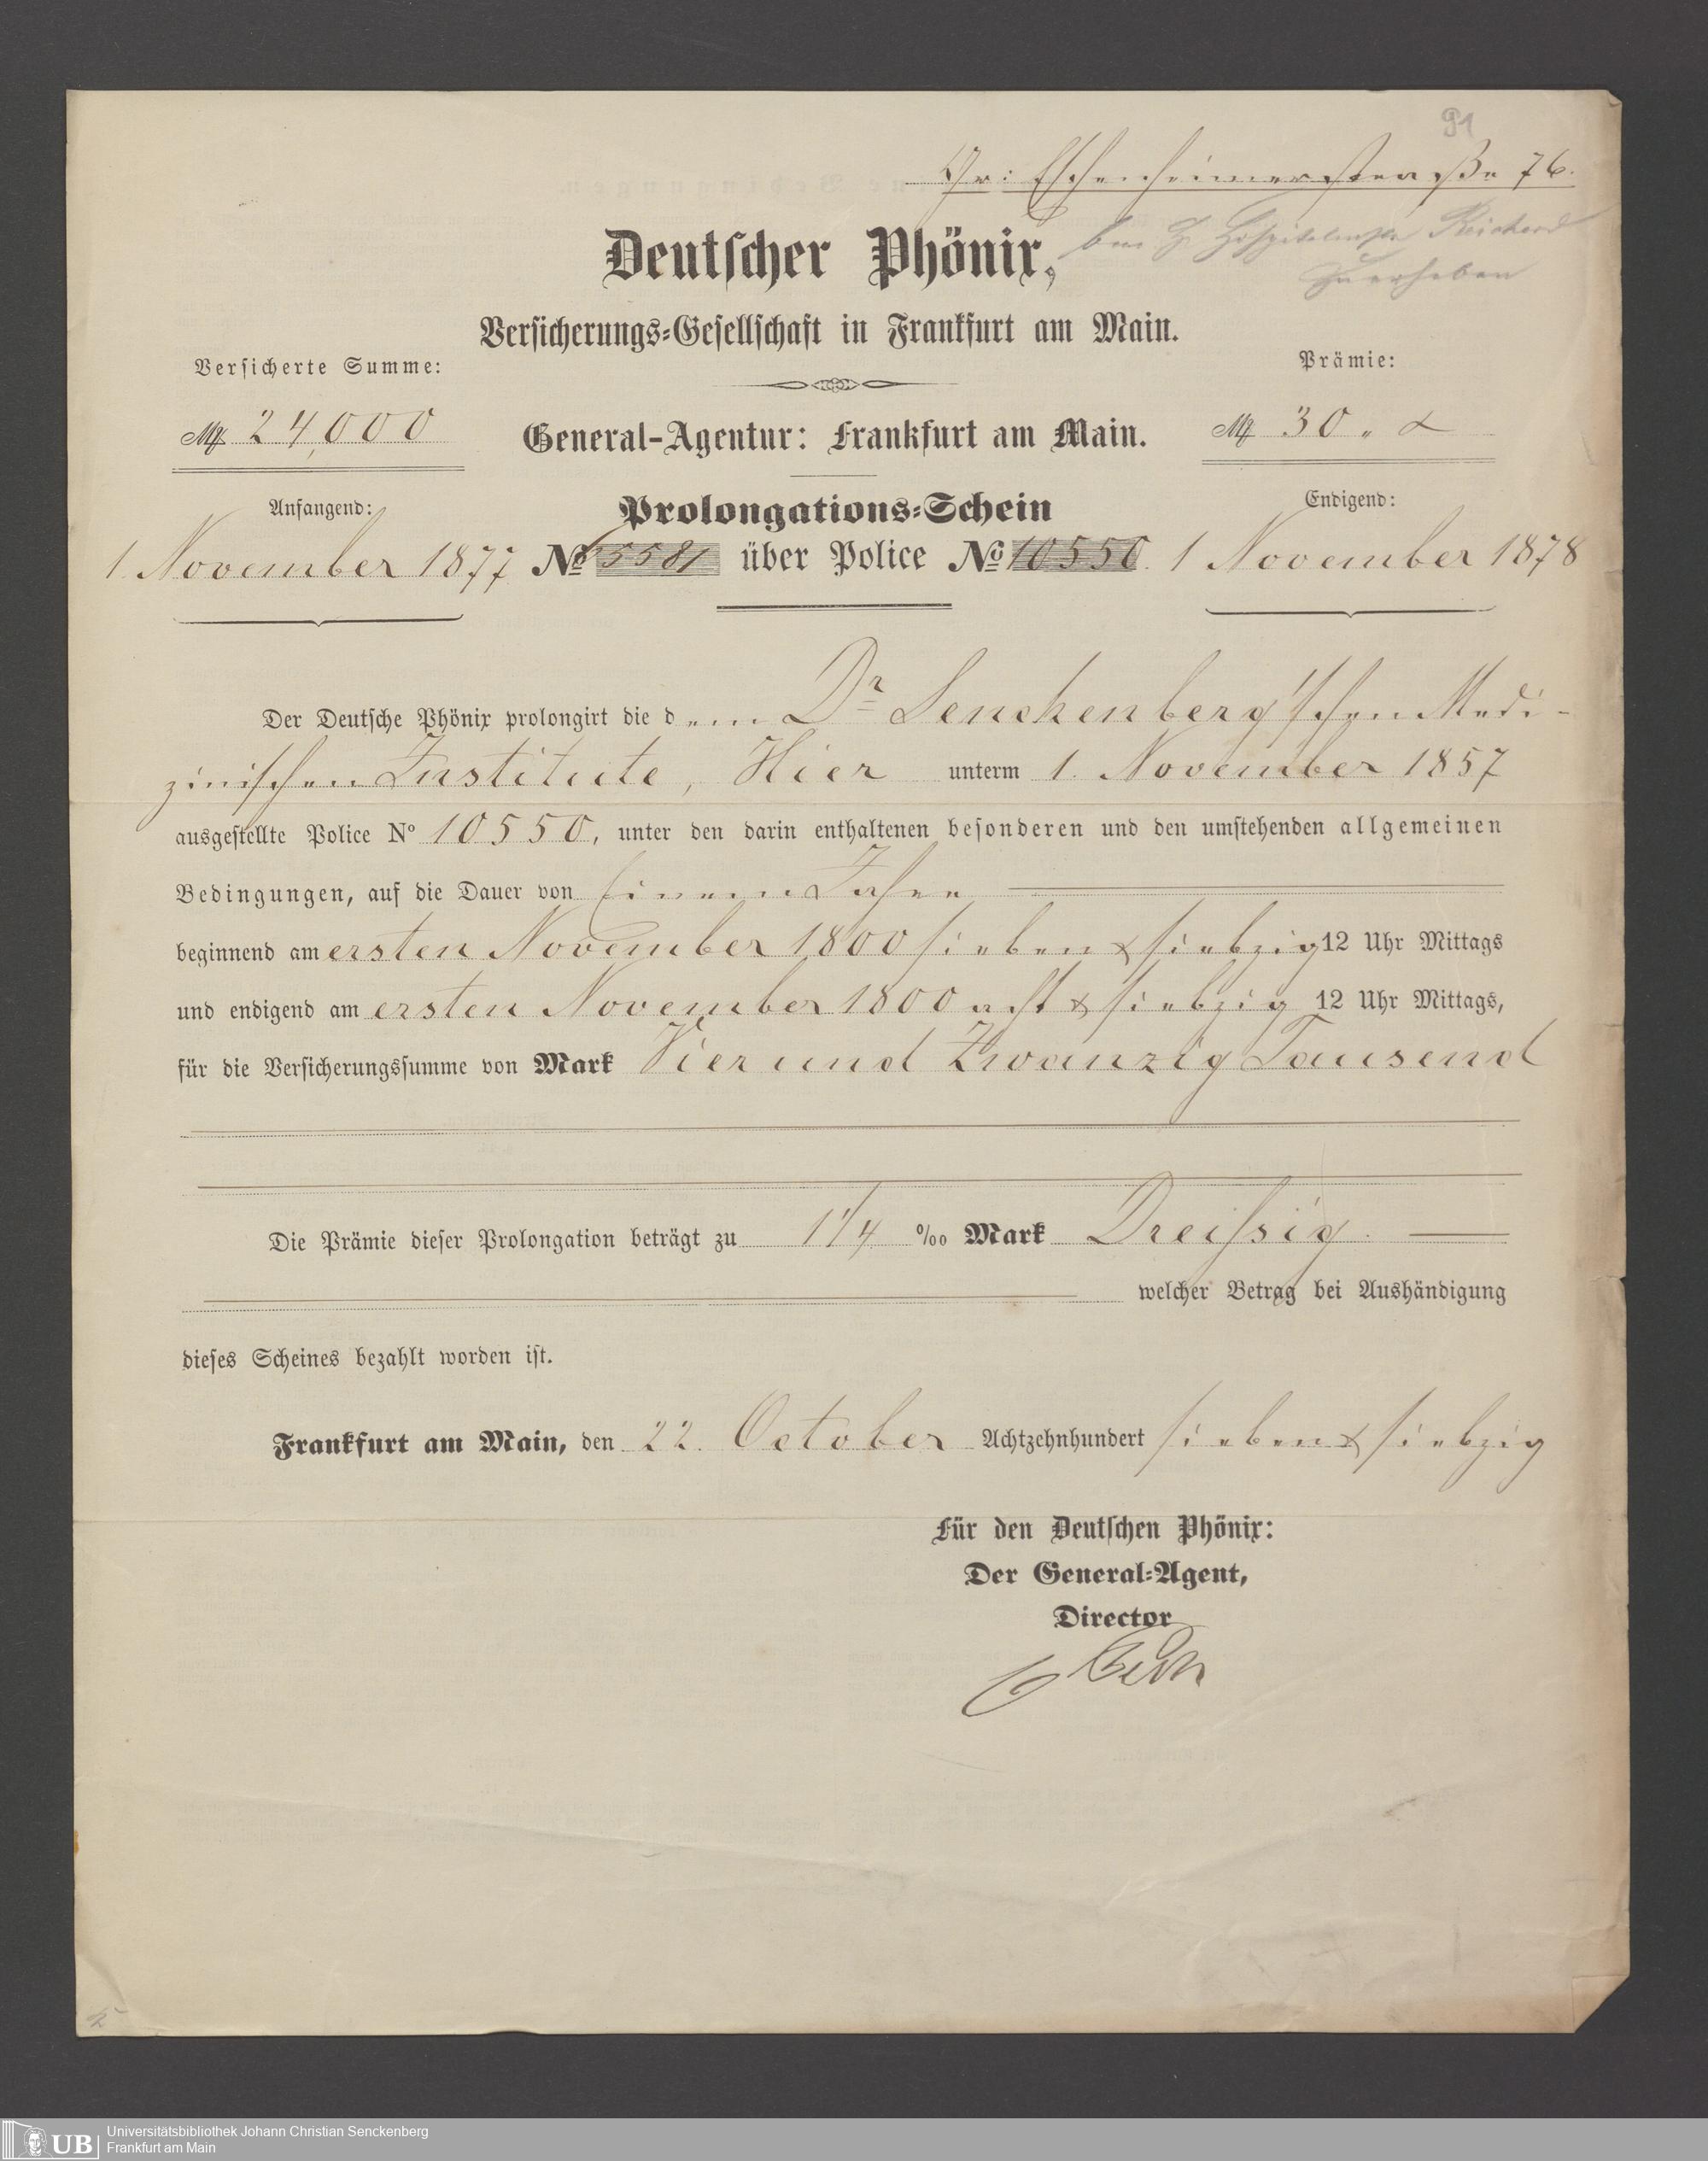 91
Gr: Eschenheimerstraße 76.
Deutscher Phönix,
Reichard
zu erheben
Versicherungs-Gesellschaft in Frankfurt am Main.
Versicherte Summe:
Prämie:
M 24,000
General-Agentur: Frankfurt am Main.
M 30 „ —
Anfangend:
Prolongations-Schein
Endigend:
1. November 1877
No 5581 über Police No 10550.
1 November 1878
Der Deutsche Phönix prolongirt die dem Dr Senckenberg'schen Medi-
zinischen Institute, Hier unterm 1. November 1857
ausgestellte Police No 10550, unter den darin enthaltenen besonderen und den umstehenden allgemeinen
Bedingungen, auf die Dauer von Einem Jahre
beginnend am ersten November 1800 sieben & siebzig 12 Uhr Mittags
und endigend am ersten November 1800 acht & siebzig 12 Uhr Mittags,
für die Versicherungssumme von Mark Vier und Zwanzig Tausend
Die Prämie dieser Prolongation beträgt zu 1 1/4 ‰ Mark Dreissig.
welcher Betrag bei Aushändigung
dieses Scheines bezahlt worden ist.
Frankfurt am Main, den 22. October Achtzehnhundert sieben & siebzig
Für den Deutschen Phönix:
Der General-Agent,
Director
UB
Universitätsbibliothek Johann Christian Senckenberg
Frankfurt am Main